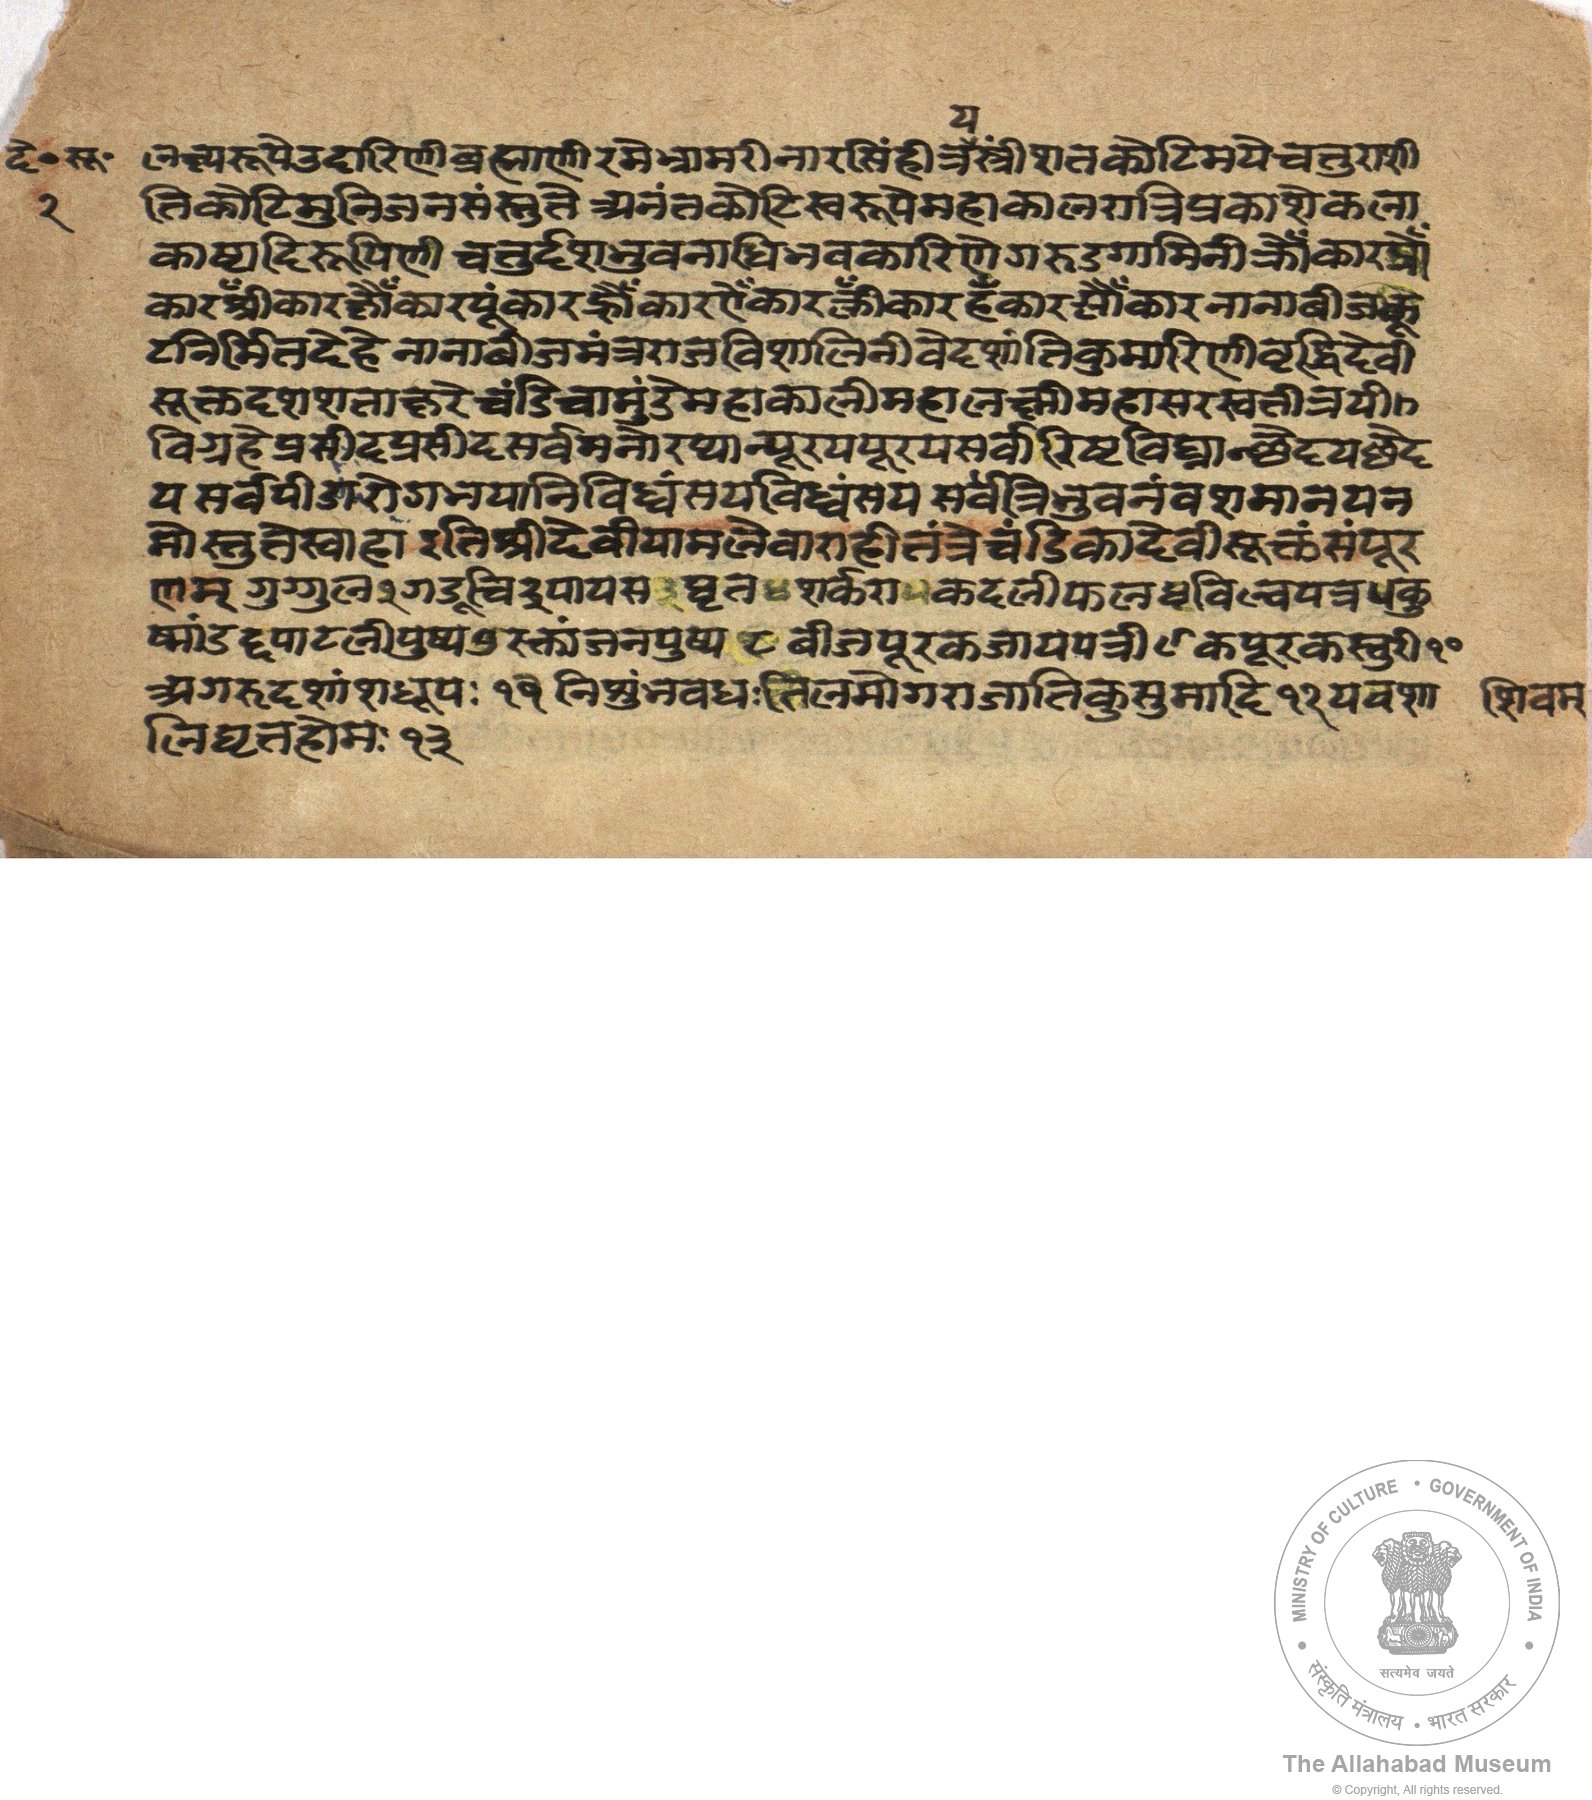 य
दे॰ सू॰
२
लक्ष्यरूपे उदारिणी ब्रह्माणी रमे भ्रामरी नारसिंही त्रैस्त्रीं शतकोटिमये चतुराशी
तिकोटिमुनिजनसंस्तुते अनंतकोटिस्वरूपे महाकालरात्रिप्रकाशे कला
काष्ठादिरूपिणी चतुर्दशभुवनाधिभवकारिणे गरुडगामिनी क्रौँकार
कारश्रीँकार ह्रौँकार पूंकार ऐँकार क्लीँकार हँकार नानाबीजकू
टनिर्मितदेहे नानाबीजमंत्रराजविशालिनी वेदशांतिकुमारिणी वृद्धिदेवी
सूक्तदशशताक्षरे चंडि चामुंडे महाकाली महालक्ष्मी महासरस्वती त्रयी
विग्रहे प्रसीद प्रसीद सर्वमनोरथान्पूरय पूरय सर्वारिष्टविघ्नान्छेदय छेद
य सर्वपीडारोगभयानि विध्वंसय विध्वंसय सर्वत्रिभुवनं वशमानय न
मोस्तुते स्वाहा इति श्रीदेवीयामले वाराहीतंत्रे चंडिकादेवीसूक्तं संपूर
णम् गुग्गुल १ गडूचि २ पायस ३ घृत ४ शर्करा ५ कदलीफल बिल्वपत्र कु
ष्मांड पाटलीपुष्प ७ रक्तांजनपुष्प ८ बीजपूरकजायपत्री ९ कपूरकस्तुरी १०
अगरुदशांशधूपः ११ निशुंभवधः तिलमोगराजातिकुसुमादि १२ यवशा
लिघृतहोमः १३
शिवम्
MINISTRY OF CULTURE • GOVERNMENT OF INDIA
सत्यमेव जयते
संस्कृति मंत्रालय • भारत सरकार
The Allahabad Museum
© Copyright, All rights reserved.